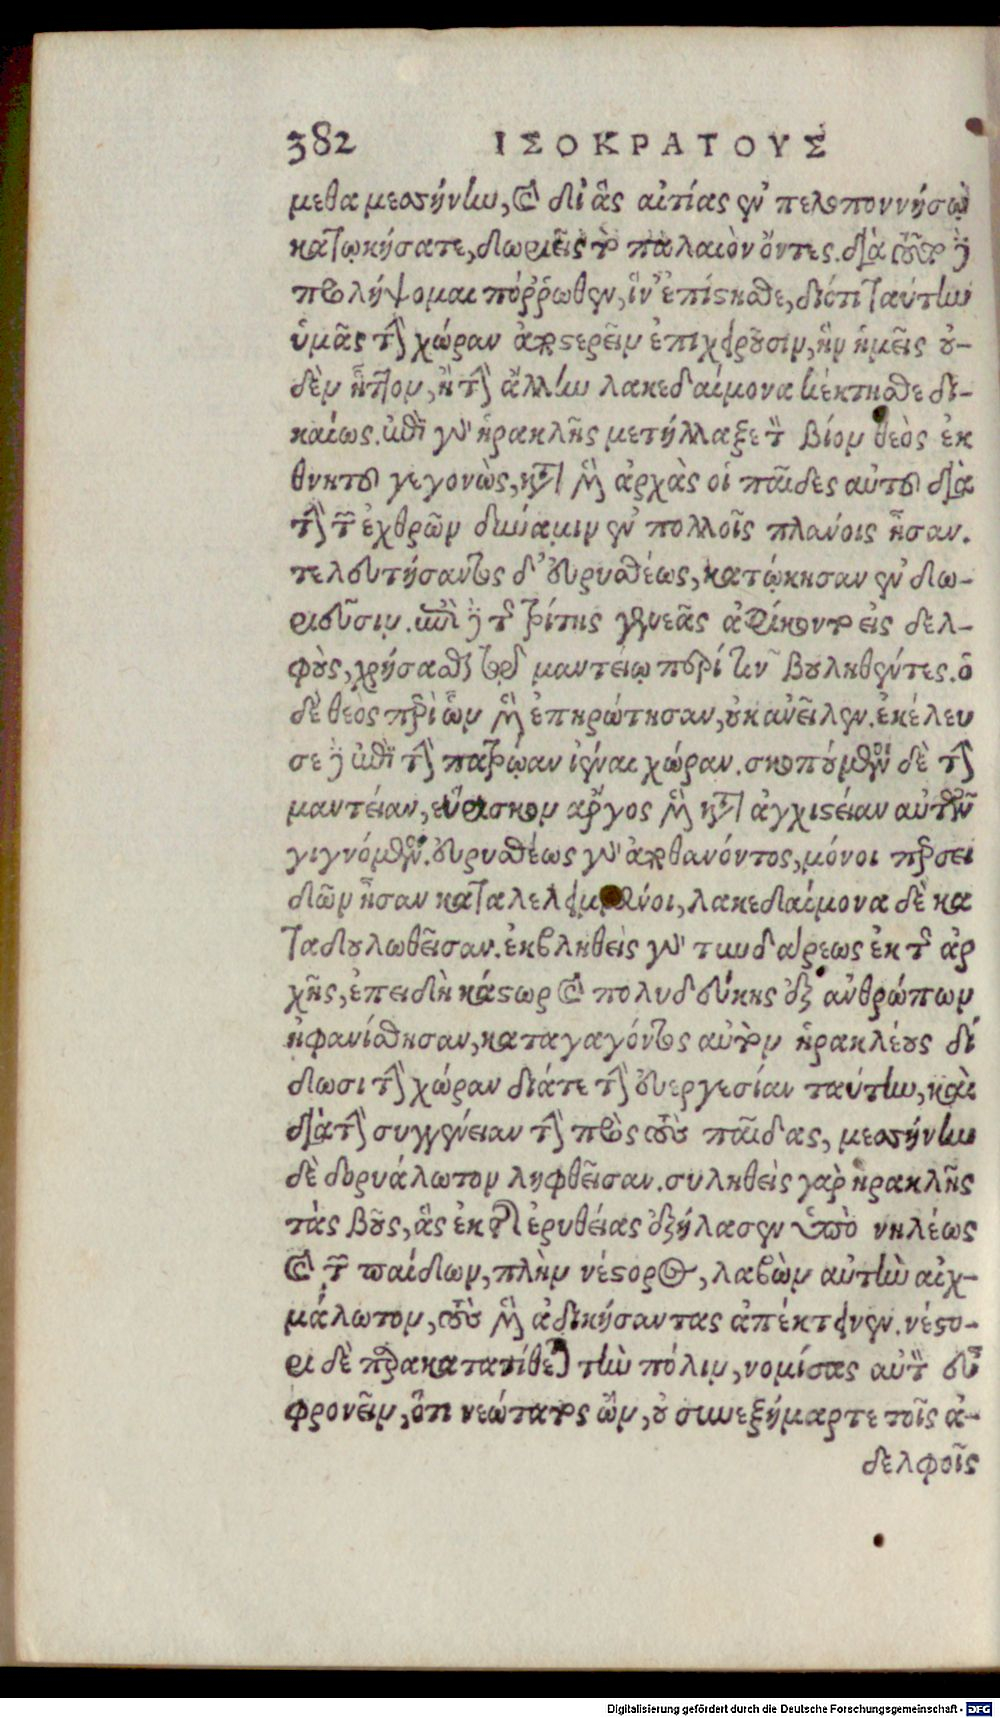 382 ΙΣΟΚΡΑΤΟΥΣ
μεθα μεσσήνην, καὶ δι' ἃς αἰτίας ἐν πελοποννήσῳ
κατῳκήσατε, δωριεῖς τὸ παλαιὸν ὄντες. διὰ τοῦτο δὲ
προλήψομαι πόῤῥωθεν, ἵν' ἐπίστησθε, διότι ταύτην
ὑμᾶς τὴν χώραν ἀποστερεῖν ἐπιχειροῦσιν, ἣν ἡμεῖς οὐ-
δὲν ἧττον, ἢ τὴν ἄλλην λακεδαίμονα κέκτησθε δι-
καίως. ἐπειδὴ γὰρ ἡρακλῆς μετήλλαξε τὸν βίον θεὸς ἐκ
θνητοῦ γεγονὼς, κατὰ μὲν ἀρχὰς οἱ παῖδες αὐτοῦ διὰ
τὴν τῶν ἐχθρῶν δύναμιν ἐν πολλοῖς πλάνοις ἦσαν.
τελευτήσαντος δ' εὐρυσθέως, κατῴκησαν ἐν δω-
ριεῦσιν. ἐπὶ δὲ τῆς τρίτης γενεᾶς ἀφίκοντο εἰς δελ-
φοὺς, χρήσασθαι τῷ μαντείῳ περί τινων βουληθέντες. ὁ
δὲ θεὸς περὶ ὧν μὲν ἐπηρώτησαν, οὐκ ἀνεῖλεν. ἐκέλευ
σε δὲ ἐπὶ τὴν πατρῴαν ἰέναι χώραν. σκοπούμενοι δὲ τὴν
μαντείαν, εὕρισκον ἄργος μὲν κατ' ἀγχιστείαν αὐτῶν
γιγνόμενον. εὐρυσθέως γὰρ ἀποθανόντος, μόνοι περσει
δῶν ἦσαν καταλελειμμένοι, λακεδαίμονα δὲ κα
ταδουλωθεῖσαν. ἐκβληθεὶς γὰρ τυνδάρεως ἐκ τῆς ἀρ
χῆς, ἐπειδὴ κάστωρ καὶ πολυδεύκης ἐξ ἀνθρώπων
ἠφανίσθησαν, καταγαγόντος αὐτὸν ἡρακλέους δί
δωσι τὴν χώραν διά τε τὴν εὐεργεσίαν ταύτην, καὶ
διὰ τὴν συγγένειαν τὴν πρὸς τοὺς παῖδας, μεσσήνην
δὲ δορυάλωτον ληφθεῖσαν. συληθεὶς γὰρ ἡρακλῆς
τὰς βοῦς, ἃς ἐκ τῆς ἐρυθείας ἐξήλασεν ὑπὸ νηλέως
καὶ τῶν παίδων, πλὴν νέστορος, λαβὼν αὐτὴν αἰχ-
μάλωτον, τοὺς μὲν ἀδικήσαντας ἀπέκτεινεν. νέστο-
ρι δὲ παρακατατίθεται τὴν πόλιν, νομίσας αὐτὸν εὖ
φρονεῖν, ὅτι νεώτατος ὢν, οὐ συνεξήμαρτε τοῖς ἀ-
δελφοῖς
Digitalisierung gefördert durch die Deutsche Forschungsgemeinschaft - DFG